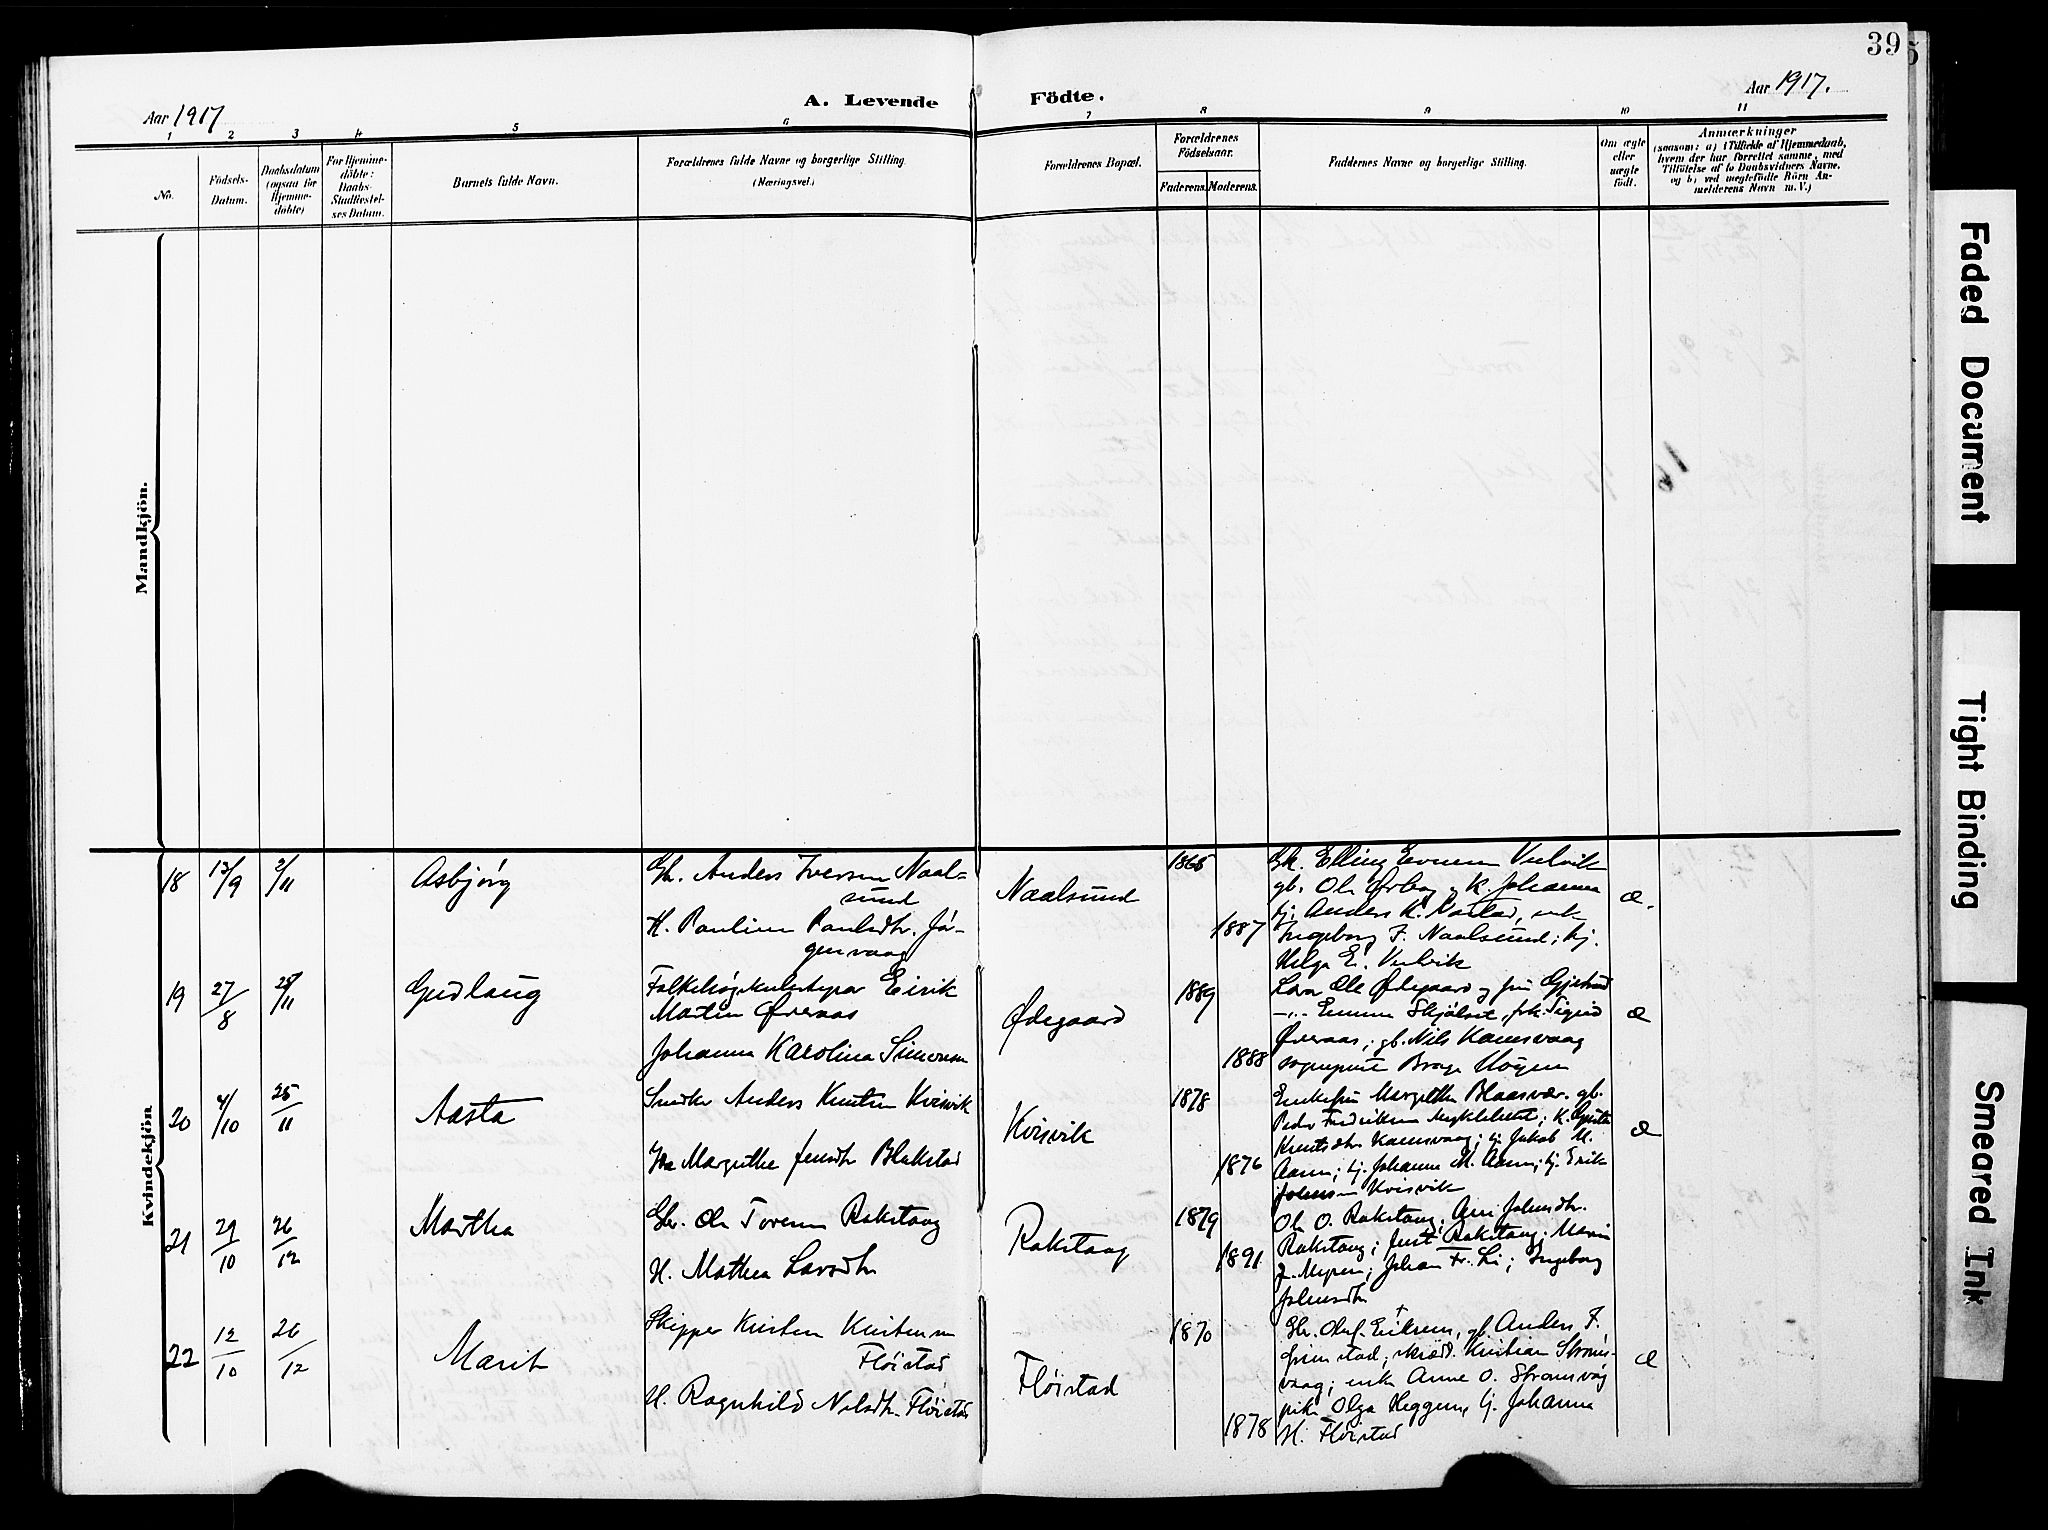 39
5
Aar 1917
A. Levende Födte.
Aar 1917.
1 2 3 4 5 6 7 8 9 10 11
No.
Födsels-
Datum.
Daabsdatum
(ogsaa for
Hjemme-
døbte)
For Hjemme-
döbte:
Daabs-
Stadfæstel-
ses Datum.
Barnets fulde Navn.
Forældrenes fulde Navne og borgerlige Stilling.
(Næringsvei.)
Forældrenes Bopæl.
Forældrenes
Födselsaar.
Faderens. Moderens.
Faddernes Navne og borgerlige Stilling.
Om ægte
eller
uægte
født.
Anmærkninger
(saasom: a) i Tilfælde af Hjemmedaab,
hvem der har forrettet samme, med
Tilføielse af to Daabsvidners Navne.
og b) ved uegtefödte Börn An-
melderens Navn m. V.)
Mandkjön.
Kvindekjön
18 13/9 2/11 Asbjörg
Gbr. Anders Iversen Naal-
sund
H. Pauline Paulsdtr. Jö-
gervaag
Naalsund
1865
1887
Gk. Elling Evensen Vulvik
gb. Ole
og K. Johanna
Anders K.
Ingeborg I. Naalsund; tj.
Helga E. Vulvik
æ.
19 27/8 25/11 Gudlaug
Folkehøgskulestyrar Eirik
Martin Øveraas
Johanna Karolina Simonsen
Ødegaard
1889
1888
Ole Ødegaard og fru Gjertrud
Emma Skjölset, frk. Sigrid
Øveraas; gb. Nils Kamsvaag
sogneprest Brage Höyem
æ
20 4/10 25/11 Aasta
Smedker Anders Knutsen Kvisvik
Margrethe Jensdtr Blakstad
Kvisvik
1878
1876
Enkefru Margrethe Blaasvær. gb.
Peder Fredriksen
; K.
Knutsdtr Kamsvaag; tj. Jakob M.
Aasen; tj. Johanna M. Aasen; tj. Erik
Johnsen Kvisvik
æ
21 29/10 26/12 Martha
Gbr. Ole Toresen Rokstaag
H. Mathea Larsdtr
Rokstaag
1879
1891
Ole O. Rokstaag; Ane Johnsdtr.
Rokstaag; Just Rokstaag; Marie
J. Myren; Johan Fr. Li; Ingeborg
Johnsdtr
22 12/10 26/12 Marit
Skipper Kristen Kristensen
Flöistad
H. Ragnhild Nilsdtr Flöistad
Flöistad
1870
1878
Gbr. Oluf Eriksen, gb. Anders F.
Grimstad; skrædd. Kristian Ströms-
vaag; enke Anne O. Strömsvåg
pike Olga Heggem, tj. Johanna
H. Flöistad
æ
Faded Document
Tight Binding
Smeared Ink